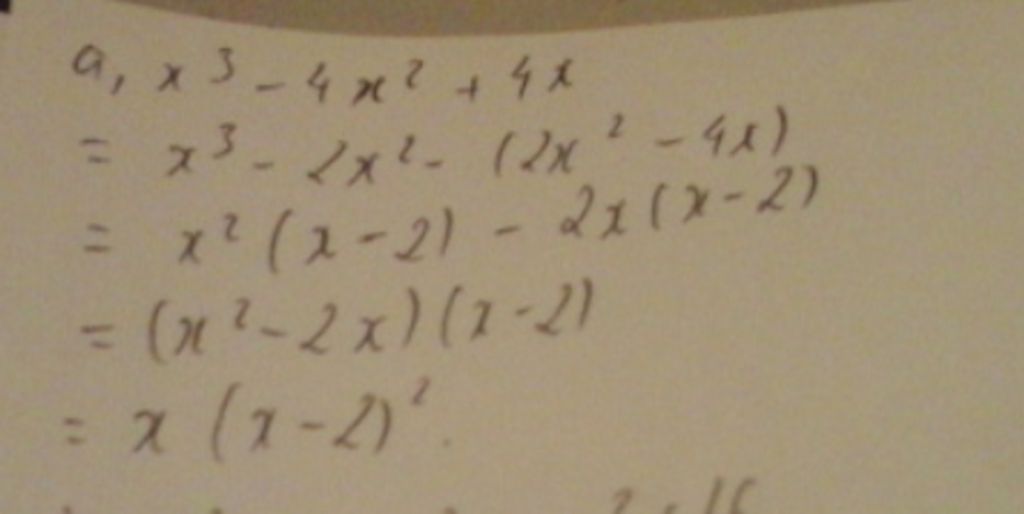 a, x³ - 4x² + 4x
= x³ - 2x² - (2x² - 4x)
= x² (x - 2) - 2x (x - 2)
= (x² - 2x) (x - 2)
= x (x - 2)².